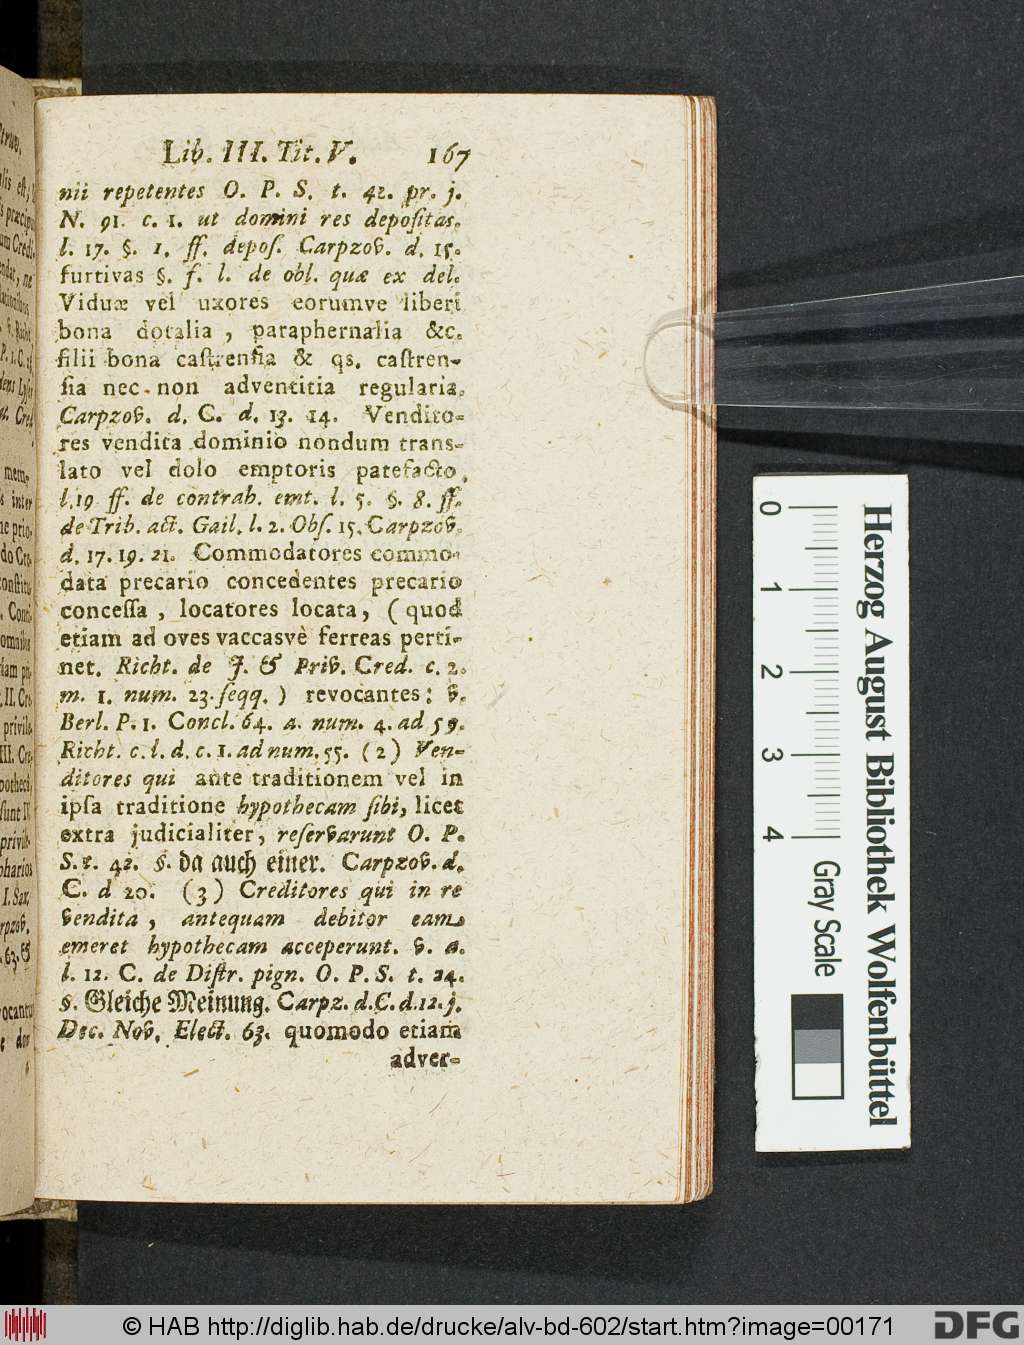 Lib. III. Tit. V. 167
nii repetentes O. P. S. t. 42. pr. j.
N. 91. c. 1. ut domini res depoſitas.
l. 17. §. 1. ff. depoſ. Carpzov. d. 15.
furtivas §. f. l. de obl. quæ ex del.
Viduæ vel uxores eorumve liberi
bona dotalia, paraphernalia &c.
filii bona caſtrenſia & qs. caſtren-
ſia nec-non adventitia regularia.
Carpzov. d. C. d. 13. 14. Vendito-
res vendita dominio nondum trans-
lato vel dolo emptoris patefacto,
l. 19 ff. de contrah. emt. l. 5. §. 8. ff.
de Trib. act. Gail. l. 2. Obſ. 15. Carpzov.
d. 17. 19. 21. Commodatores commo-
data precario concedentes precario
conceſſa, locatores locata, (quod
etiam ad oves vaccasvè ferreas perti-
net. Richt. de J. & Priv. Cred. c. 2.
m. 1. num. 23. ſeqq.) revocantes: v.
Berl. P. 1. Concl. 64. a. num. 4. ad 59.
Richt. c. l. d. c. 1. ad num. 55. (2) Ven-
ditores qui ante traditionem vel in
ipſa traditione hypothecam ſibi, licet
extra judicialiter, reſervarunt O. P.
S. t. 42. §. da auch einer. Carpzov. d.
C. d 20. (3) Creditores qui in re
vendita, antequam debitor eam
emeret hypothecam acceperunt. v. a.
l. 12. C. de Diſtr. pign. O. P. S. t. 24.
§. Gleiche Meinung. Carpz. d. C. d. 12. j.
Dec. Nov. Elect. 63. quomodo etiam
adver-
0 1 2 3 4
Gray Scale
Herzog August Bibliothek Wolfenbüttel
© HAB http://diglib.hab.de/drucke/alv-bd-602/start.htm?image=00171
DFG